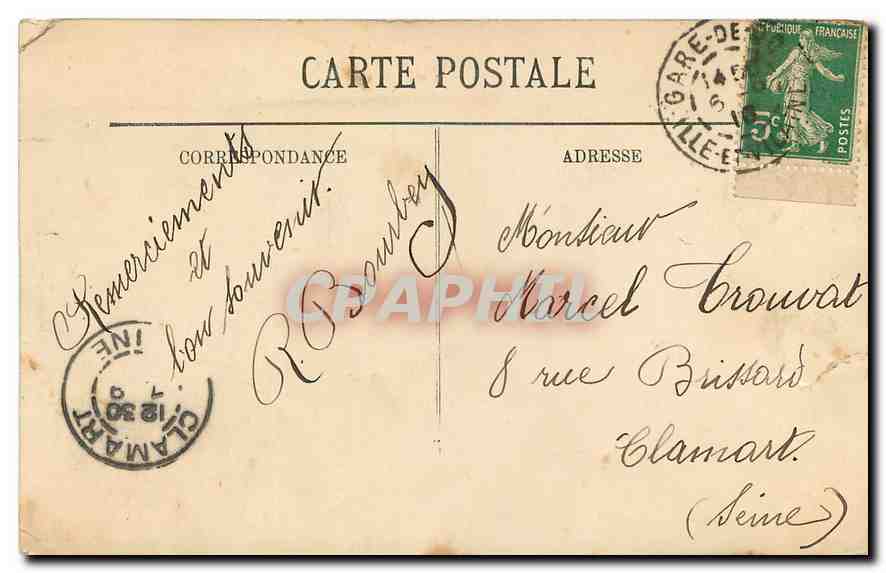 CARTE POSTALE
CORRESPONDANCE
ADRESSE
Remerciements
et
bon souvenir.
R. Bourbey
Monsieur
Marcel Trouvat
8 rue Brissard
Clamart.
(Seine)
GARE-DE-
ILLE-ET-VILAINE
REPUBLIQUE FRANÇAISE
5c
POSTES
CLAMART
12 30
INE
CPAPHIL